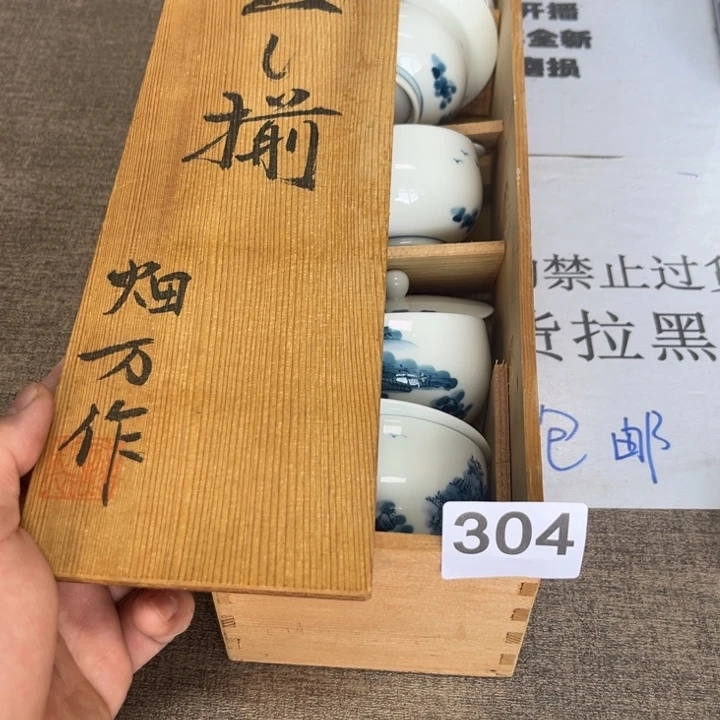 し
揃
畑
万
作
304
开播
全新
磨损
禁止过
货拉黑
包邮